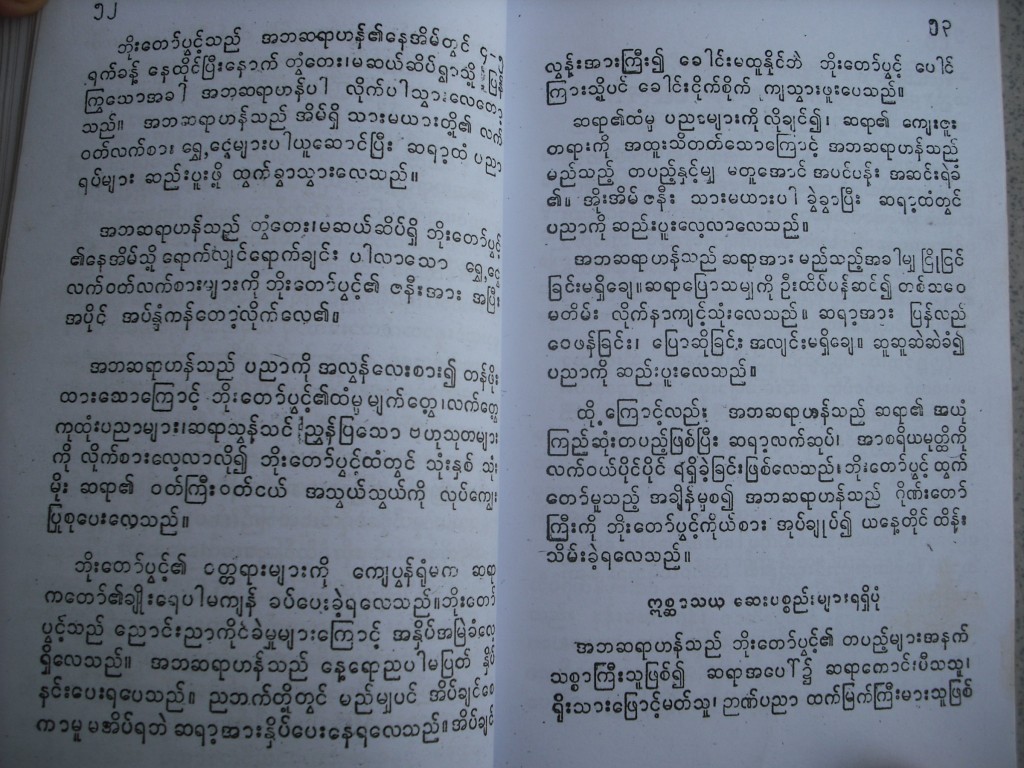 ၅၂
ဘိုးတော်ပွင့်သည် အဘဆရာဟန်၏နေအိမ်တွင် ၄-၅
ရက်ခန့် နေထိုင်ပြီးနောက် တွံတေး၊မဆယ်ဆိပ်ရွာသို့ ပြန်
ကြွသောအခါ အဘဆရာဟန်ပါ လိုက်ပါသွားလေတော့
သည်။ အဘဆရာဟန်သည် အိမ်ရှိ သားမယားတို့၏ လက်
ဝတ်လက်စား ရွှေ,ငွေများပါယူဆောင်ပြီး ဆရာ့ထံ ပညာ
ရပ်များ ဆည်းပူးဖို့ ထွက်ခွာသွားလေသည်။
အဘဆရာဟန်သည် တွံတေး၊မဆယ်ဆိပ်ရှိ ဘိုးတော်ပွင့်
၏နေအိမ်သို့ ရောက်လျှင်ရောက်ချင်း ပါလာသော ရွှေ,ငွေ
လက်ဝတ်လက်စားများကို ဘိုးတော်ပွင့်၏ ဇနီးအား အပြီး
အပိုင် အပ်နှံကန်တော့လိုက်လေ၏။
အဘဆရာဟန်သည် ပညာကို အလွန်လေးစား၍ တန်ဖိုး
ထားသောကြောင့် ဘိုးတော်ပွင့်၏ထံမှ မျက်တွေ့၊လက်တွေ့
ကုထုံးပညာများ၊ဆရာသွန်သင် ညွှန်ပြသော ဗဟုသုတများ
ကို လိုက်စားလေ့လာလို၍ ဘိုးတော်ပွင့်ထံတွင် သုံးနှစ် သုံး
မိုး ဆရာ၏ ဝတ်ကြီးဝတ်ငယ် အသွယ်သွယ်ကို လုပ်ကျွေး
ပြုစုပေးလေ့သည်။
ဘိုးတော်ပွင့်၏ ဝတ္တရားများကို ကျေပွန်ရုံမက ဆရာ
ကတော်၏ချိုးရေပါမကျန် ခပ်ပေးခဲ့ရလေသည်။ဘိုးတော်
ပွင့်သည် ညောင်းညာကိုင်ခဲမှုများကြောင့် အနှိပ်အမြဲခံလေ့
ရှိလေသည်။ အဘဆရာဟန်သည် နေ့ရောညပါမပြတ် နှိပ်
နင်းပေးရပေသည်။ ညဘက်တို့တွင် မည်မျှပင် အိပ်ချင်စေ
ကာမူ မအိပ်ရဘဲ ဆရာ့အားနှိပ်ပေးနေရလေသည်။အိပ်ချင်
၅၃
လွန်းအားကြီး၍ ခေါင်းမထူနိုင်ဘဲ ဘိုးတော်ပွင့် ပေါင်
ကြားသို့ပင် ခေါင်းငိုက်စိုက် ကျသွားဖူးပေသည်။
ဆရာ၏ထံမှ ပညာများကို လိုချင်၍၊ ဆရာ၏ ကျေးဇူး
တရားကို အထူးသိတတ်သောကြောင့် အဘဆရာဟန်သည်
မည်သည့် တပည့်နှင့်မျှ မတူအောင် အပင်ပန်း အဆင်းရဲခံ
၏။ အိုးအိမ် ဇနီး သားမယားပါ ခွဲခွာပြီး ဆရာ့ထံတွင်
ပညာကို ဆည်းပူးလေ့လာလေသည်။
အဘဆရာဟန်သည် ဆရာအား မည်သည့်အခါမျှ ငြိုငြင်
ခြင်းမရှိချေ။ဆရာပြောသမျှကို ဦးထိပ်ပန်ဆင်၍ တစ်သဝေ
မတိမ်း လိုက်နာကျင့်သုံးလေသည်။ ဆရာ့အား ပြန်လည်
ဝေဖန်ခြင်း၊ ပြောဆိုခြင်း အလျင်းမရှိချေ။ ဆူဆူဆဲဆဲခံ၍
ပညာကို ဆည်းပူးလေသည်။
ထို့ကြောင့်လည်း အဘဆရာဟန်သည် ဆရာ၏ အယုံ
ကြည်ဆုံးတပည့်ဖြစ်ပြီး ဆရာ့လက်ဆုပ်၊ အာစရိယမုတ္တိကို
လက်ဝယ်ပိုင်ပိုင် ရရှိခဲ့ခြင်းဖြစ်လေသည်။ဘိုးတော်ပွင့် ထွက်
တော်မူသည့် အချိန်မှစ၍ အဘဆရာဟန်သည် ဂိုဏ်းတော်
ကြီးကို ဘိုးတော်ပွင့်ကိုယ်စား အုပ်ချုပ်၍ ယနေ့တိုင် ထိန်း
သိမ်းခဲ့ရလေသည်။
ဣစ္ဆာသယ ဆေးပစ္စည်းများရရှိပုံ
အဘဆရာဟန်သည် ဘိုးတော်ပွင့်၏ တပည့်များအနက်
သစ္စာကြီးသူဖြစ်၍ ဆရာအပေါ်၌ ဆရာကောင်းပီသသူ၊
ရိုးသားဖြောင့်မတ်သူ၊ ဉာဏ်ပညာ ထက်မြက်ကြီးမားသူဖြစ်